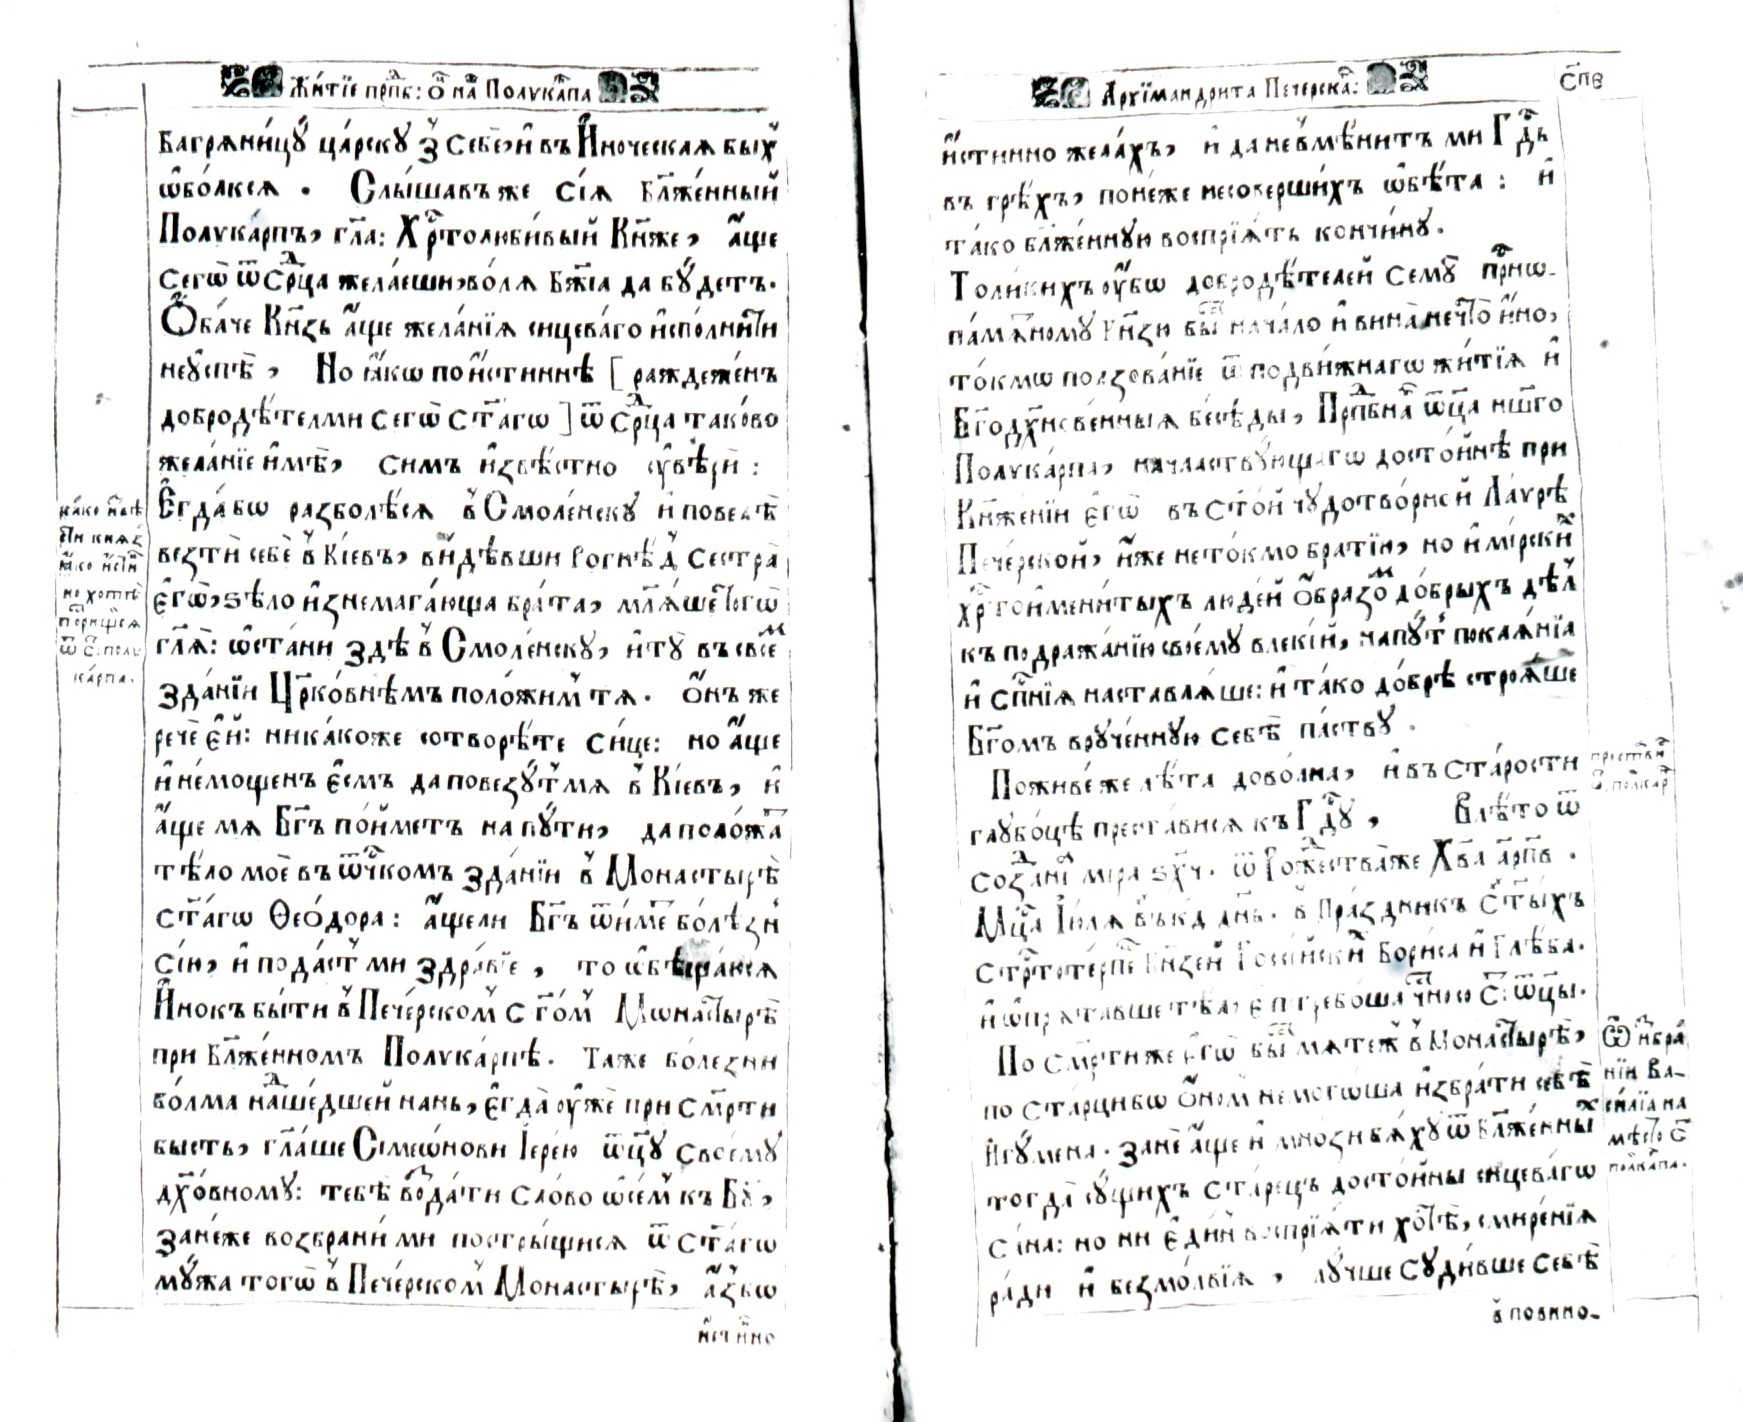 Житїе прпб: Ѻ на Полꙋкапа
Багрѧни́цꙋ ца́рскꙋ з̾ себѐ, и҆ въ И҆ноческаѧ бых̾
ѡ҆бо́лксѧ. Слы́шавъ же сїѧ̀ бл҃же́нный
Полꙋка́рпъ, гл҃а: Хр҃толюби́вый Кн҃же, а҆́ще
сегѡ̀ ѿ Ср҃ца жела́еши, во́лѧ Бж҃їа да бꙋ́детъ.
Ѻ҆ба́че Кн҃зь а҆́ще жела́нїѧ сицева́го и҆спо́лнити
неꙋспѣ̀, Но ꙗ҆́кѡ по и҆́стиннѣ [ раждеже́нъ
добродѣ́телми сегѡ̀ ст҃а́гѡ ] ѿ ср҃ца тако́во
жела́нїе и҆мѣ̀, симъ и҆звѣ́стно ᲂу҆вѣ́рѝ:
Е҆гда́ бѡ разболѣ́сѧ в̾ Смоле́нскꙋ и҆ повелѣ̀
везтѝ себѐ в̾ Кі́евъ, ви́дѣвши Рогнѣ́д̾ Сестра̀
є҆гѡ̀, ѕѣ́ло и҆знемага́юща бра́та, мл҃ѧ́ше є҆го̀
гл҃ѧ: ѡ҆ста́ни здѣ̀ в̾ Смоле́нскꙋ, и҆ тꙋ̀ въ свое́м
зда́нїи Цр҃ко́внѣмъ поло́жим̾ тѧ. Ѻ҆́нъ же
речѐ є҆́й: ника́коже сотворѣ́те си́це: но а҆́ще
и҆ не́мощенъ є҆́смъ да повезꙋ́т̾ мѧ в̾ Кі́евъ, и҆
а҆́ще мѧ Бг҃ъ по́йметъ на пꙋти̑, да поло́жа
тѣ́ло моѐ въ ѿчкомъ зда́нїи в̾ Монастырѣ̀
ст҃а́гѡ Ѳео́дора: а҆́щели Бг҃ъ ѿи́мет̾ бо́лѣзн̾
сїю̀, и҆ пода́ст̾ ми здра́вїе, то ѡ҆бѣща́юсѧ
И҆́нокъ бы́ти в̾ Пече́рском̾ ст҃о́м̾ Монасты́рѣ̀
при бл҃же́нномъ Полꙋка́рпѣ. Таже бо́лезни
во́лма нашедшей нань, є҆гда̀ ᲂу҆жѐ при См҃рти
бысть, гл҃а́ше Сїмеѡ́нови Їере́ю ѿцꙋ̀ своемꙋ̀
дх҃о́вномꙋ: тебѣ̀ во́зда́ти сло́во ѡ҆ се́м̾ къ Бг҃ꙋ,
зане́же возбранѝ ми постры́щисѧ ѿ ст҃а́гѡ
мꙋ́жа тогѡ̀ в̾ Пече́рском̾ Монасты́рѣ, а҆́з̾бѡ
и҆́стинно
ка́ко
ѿ с: полꙋ
ка́рпа.
А҆рхїмандрита Печерска:
СПВ
и҆́стинно жела́хъ, и҆ да невмѣ́нитъ ми Гд҇ь
въ грѣ́хъ, поне́же несоверши́хъ ѡ҆бѣ́та: и҆
та́ко бл҃же́ннꙋю воспрїѧ́тъ кончи́нꙋ.
Толи́кихъ ᲂу҆́бѡ добродѣ́телей семꙋ̀ приѡ-
па́мѧтномꙋ Кн҃зю бы́сть нача́ло и҆ вина̀ не что̀ и҆́но,
то́кмѡ по́лзова́нїе ѿ подви́жнагѡ жи́тїѧ и҆
Бг҃одх҃нове́нныѧ бесѣ́ды, Прпбна ѿца нш҃го
Полꙋка́рпа, нача́лствꙋ́ющагѡ досто́йнѣ при
Кн҃же́нїи є҆гѡ̀ въ ст҃о́й чꙋдотво́рной Ла́ѵрѣ
Пече́рской, и҆́же нето́кмо бра́тїи, но и҆ мі́рски
хр҃тои҆мени́тыхъ люде́й ѻ҆́бразо́м до́брыхъ дѣ́л̾
къ подража́нїю своемꙋ̀ влекі́й, на пꙋ́т̾ покаѧ́нїѧ
и҆ сп҃нїѧ наставлѧ́ше: и҆ та́ко до́брѣ строѧ́ше
Бг҃омъ врꙋче́ннꙋю себѣ̀ па́ствꙋ.
Пожи́в же лѣ́та дово́лна, и҆ въ ста́рости
глꙋбо́цѣ преста́висѧ къ Гд҇ꙋ, В лѣ́то ѿ
созда́нї мі́ра ѕх҃ч. ѿ Рождества́же Хв҃а а҆рпв.
Мц҇а І҆ю́лѧ в̾ък҃д дн҃ь. в̾ Пра́здникъ ст҃ы́хъ
стртоте́рпе Кн҃зе́й Россі́йски Бори́са и҆ Глѣ́ба.
и҆ ѡ҆прѧтавше тѣло, є҆ погребоша чно со с: ѿцы̀.
По см҃рти же є҆гѡ̀ бы́сть мѧте́ж̾ в̾ Монасты́рѣ,
по ста́рци бѡ ѻ҆́ном̾ немого́ша и҆збра́ти себѣ̀
И҆гꙋ́мена. занѐ а҆́ще и҆ мно́зи бѧхꙋ̀ ѿ бл҃же́нны
тогда̀ сꙋ́щихъ ста́рецъ досто́йны сицева́гѡ
са́на: но ни є҆ди́н воспрїѧ́ти хотѣ̀, смире́нїѧ
ра́ди и҆ безмо́лвїѧ, лꙋ́чше сꙋди́вше себѣ̀
в̾ повино-
преставл
с. полікар
Ѡ҆ и҆збра́
нїи Ва-
си́лїа на
мѣсто с
полкапа.